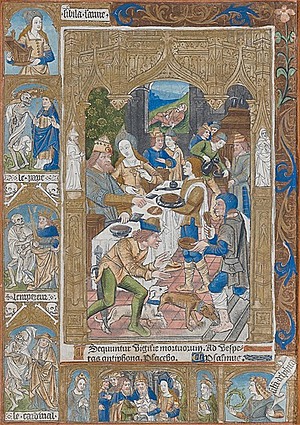 le pape
lempereur
le cardinal
Sequuntur vigilie mortuorum. Ad vespe
ras antyphona. Placebo. Psalmus